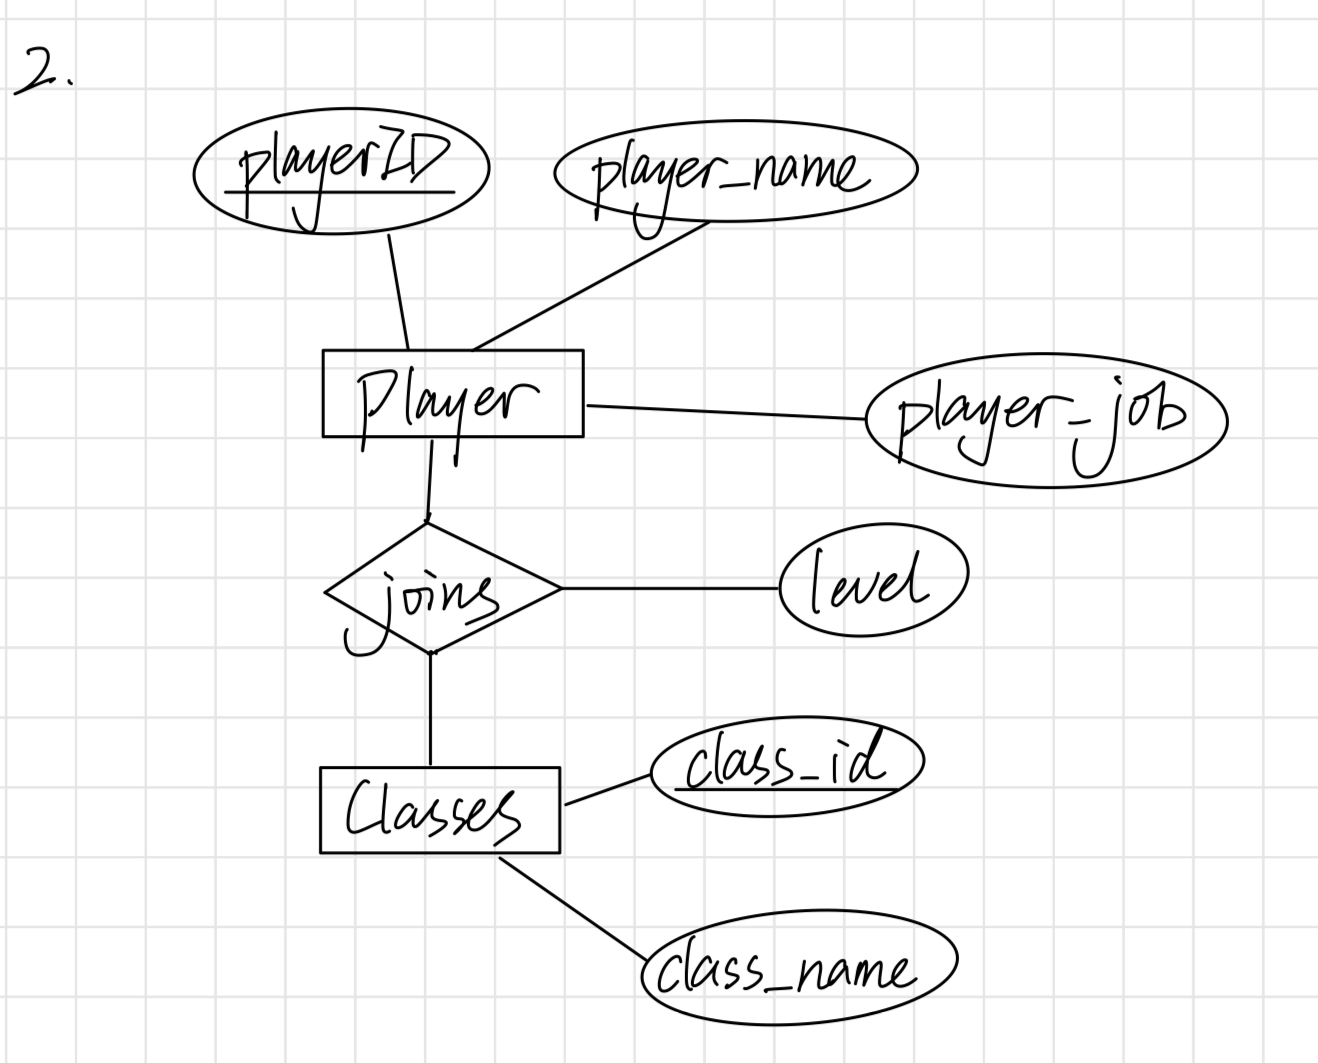 2.
playerID
player_name
Player
player_job
joins
level
class_id
Classes
class_name